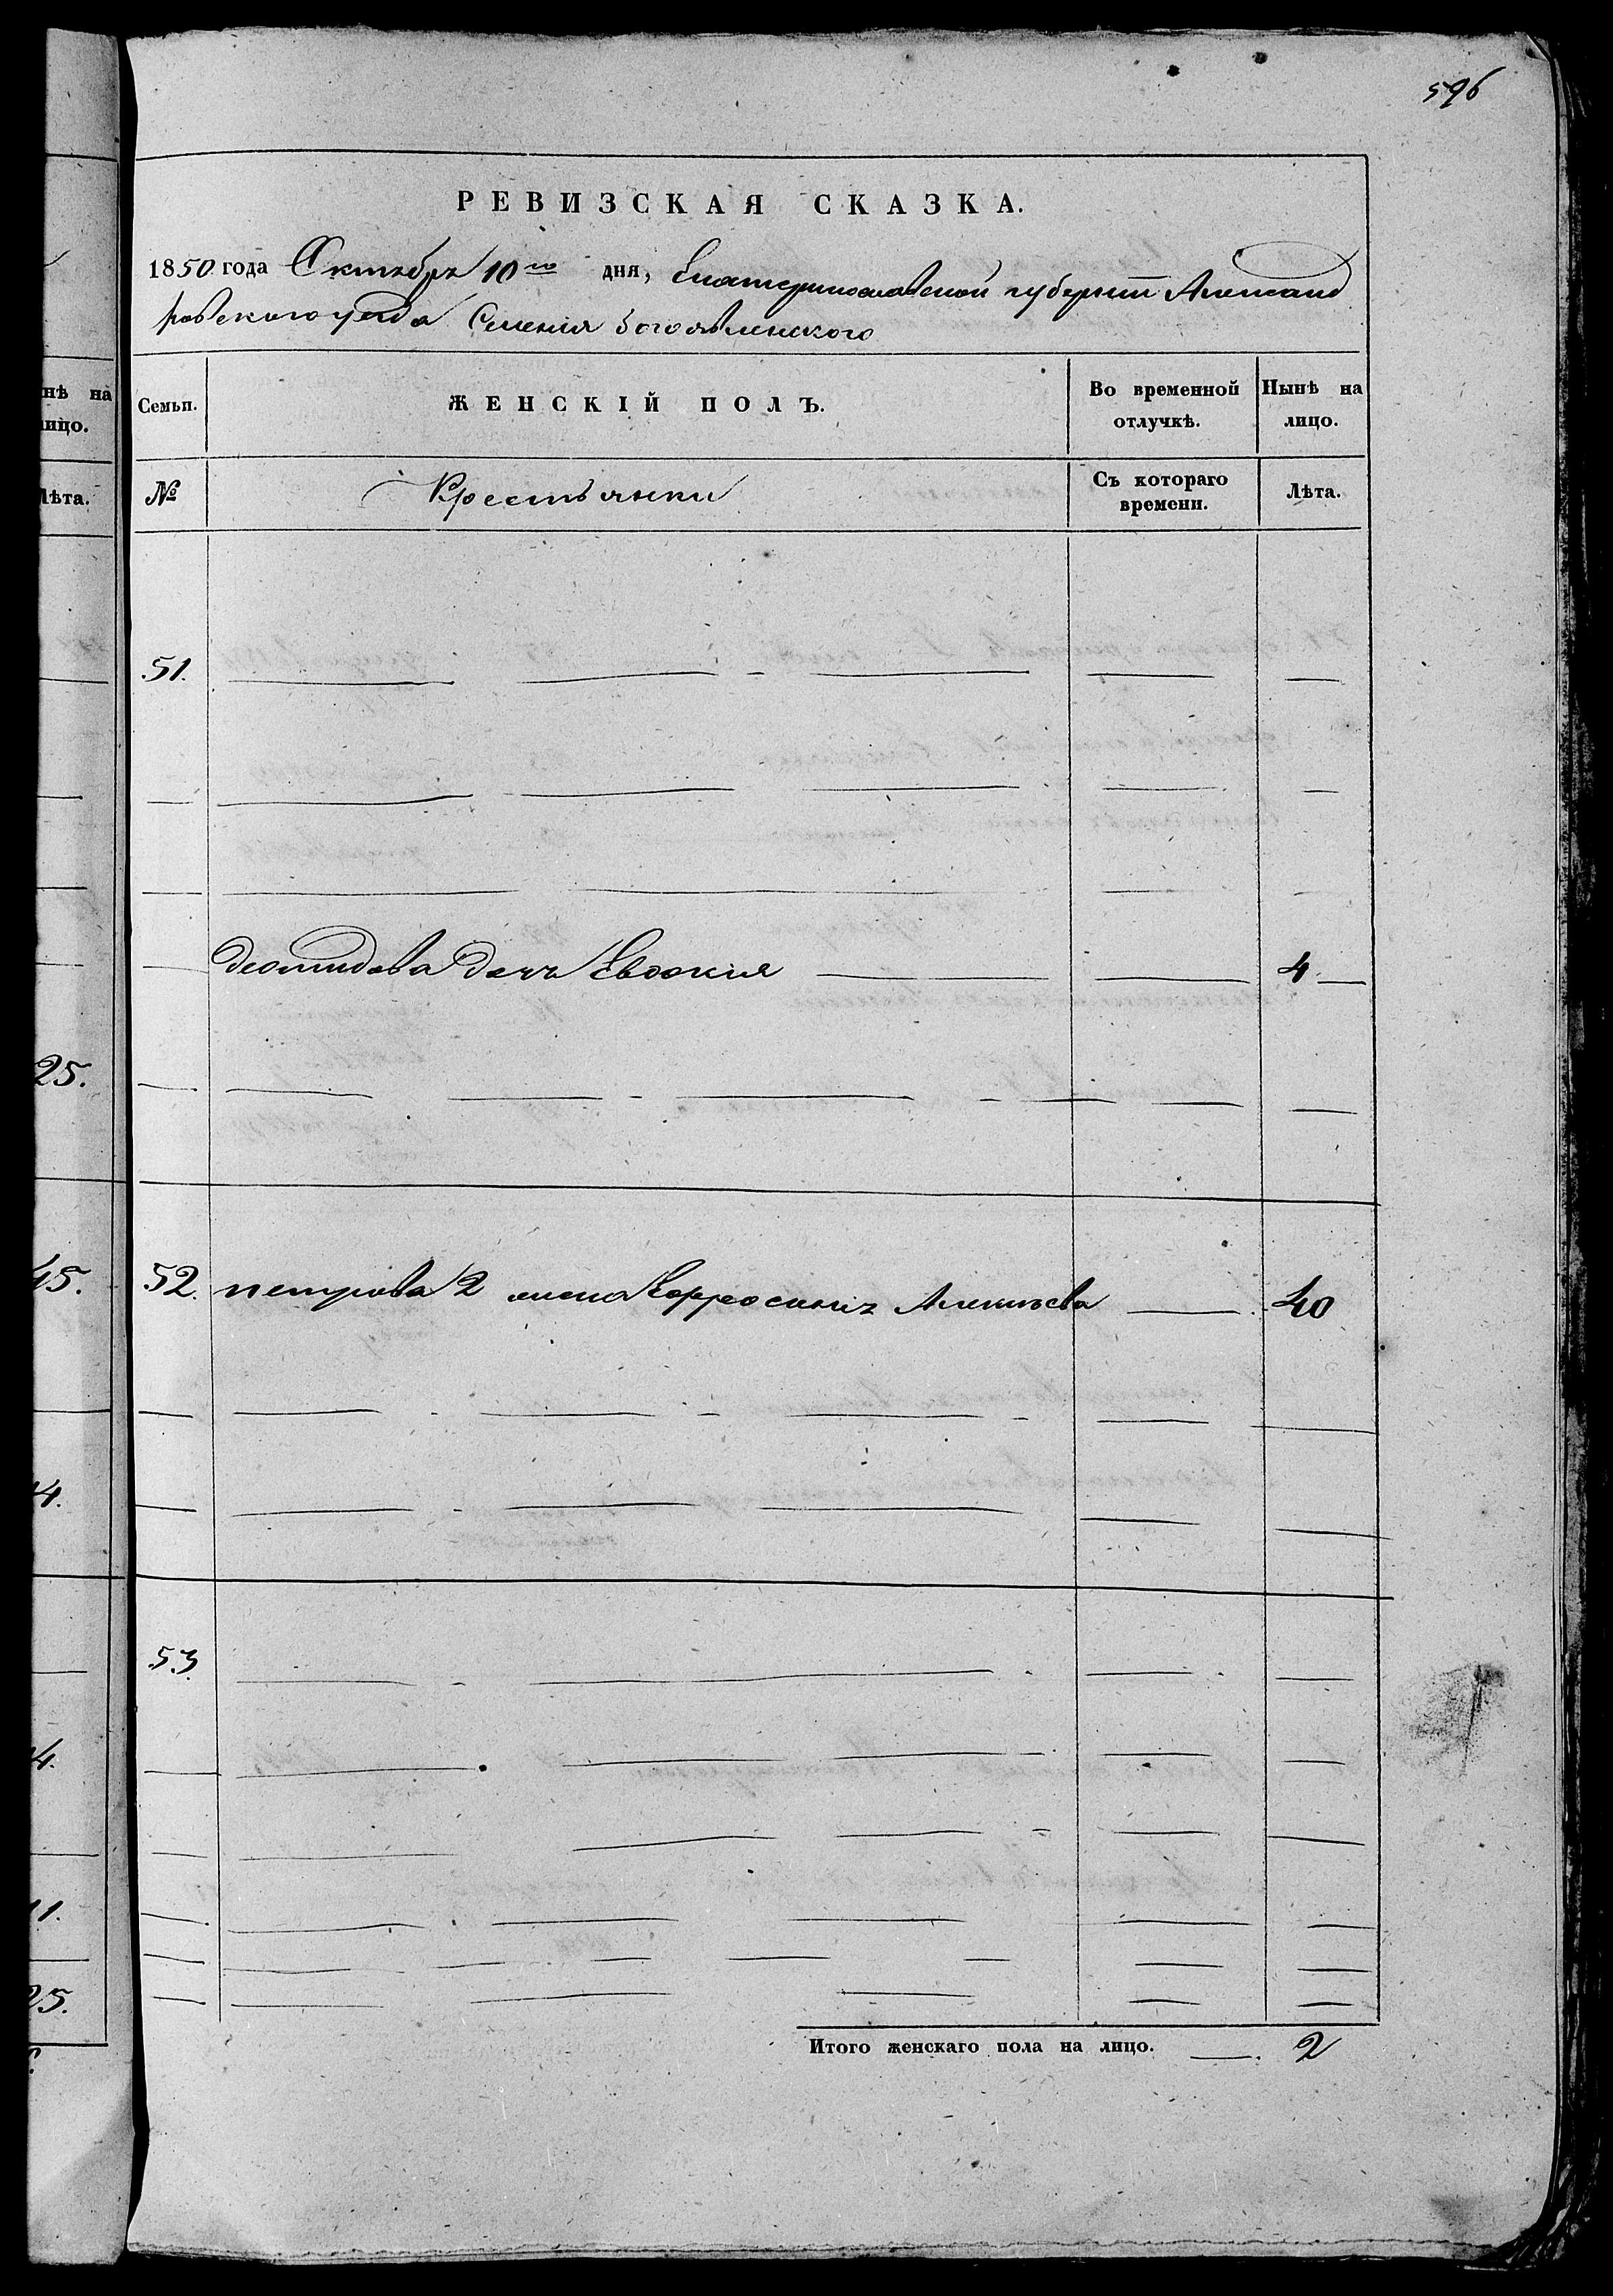 596
РЕВИЗСКАЯ СКАЗКА.
1850 года Октября 10го дня, Екатеринославской губернии Александ
ровского уезда Селения Богоявленского
Семьи. ЖЕНСКІЙ ПОЛЪ. Во временной отлучкѣ. Нынѣ на лицо.
№ Крестьянки Съ котораго времени. Лѣта.
51.
дочь Евдокия 4
52. петрова 2 жена Евфросиния Алексѣева 40
53.
Итого женскаго пола на лицо. 2
нѣ на
ицо.
Лѣта.
25.
45.
4.
4.
11.
25.